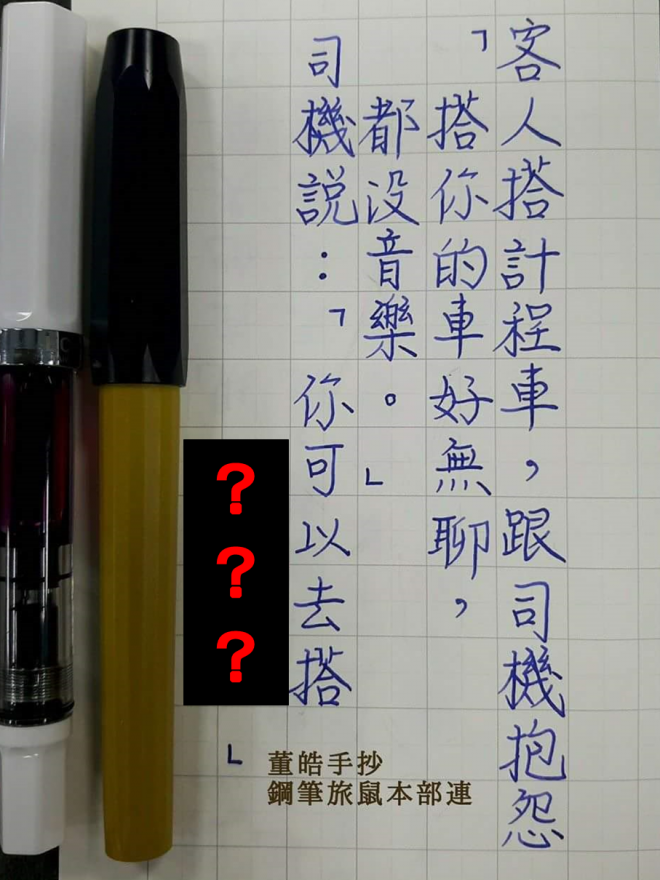 客人搭計程車，跟司機抱怨
「搭你的車好無聊，
都没音樂。」
司機説：「你可以去搭
？？？
」
董皓手抄
鋼筆旅鼠本部連